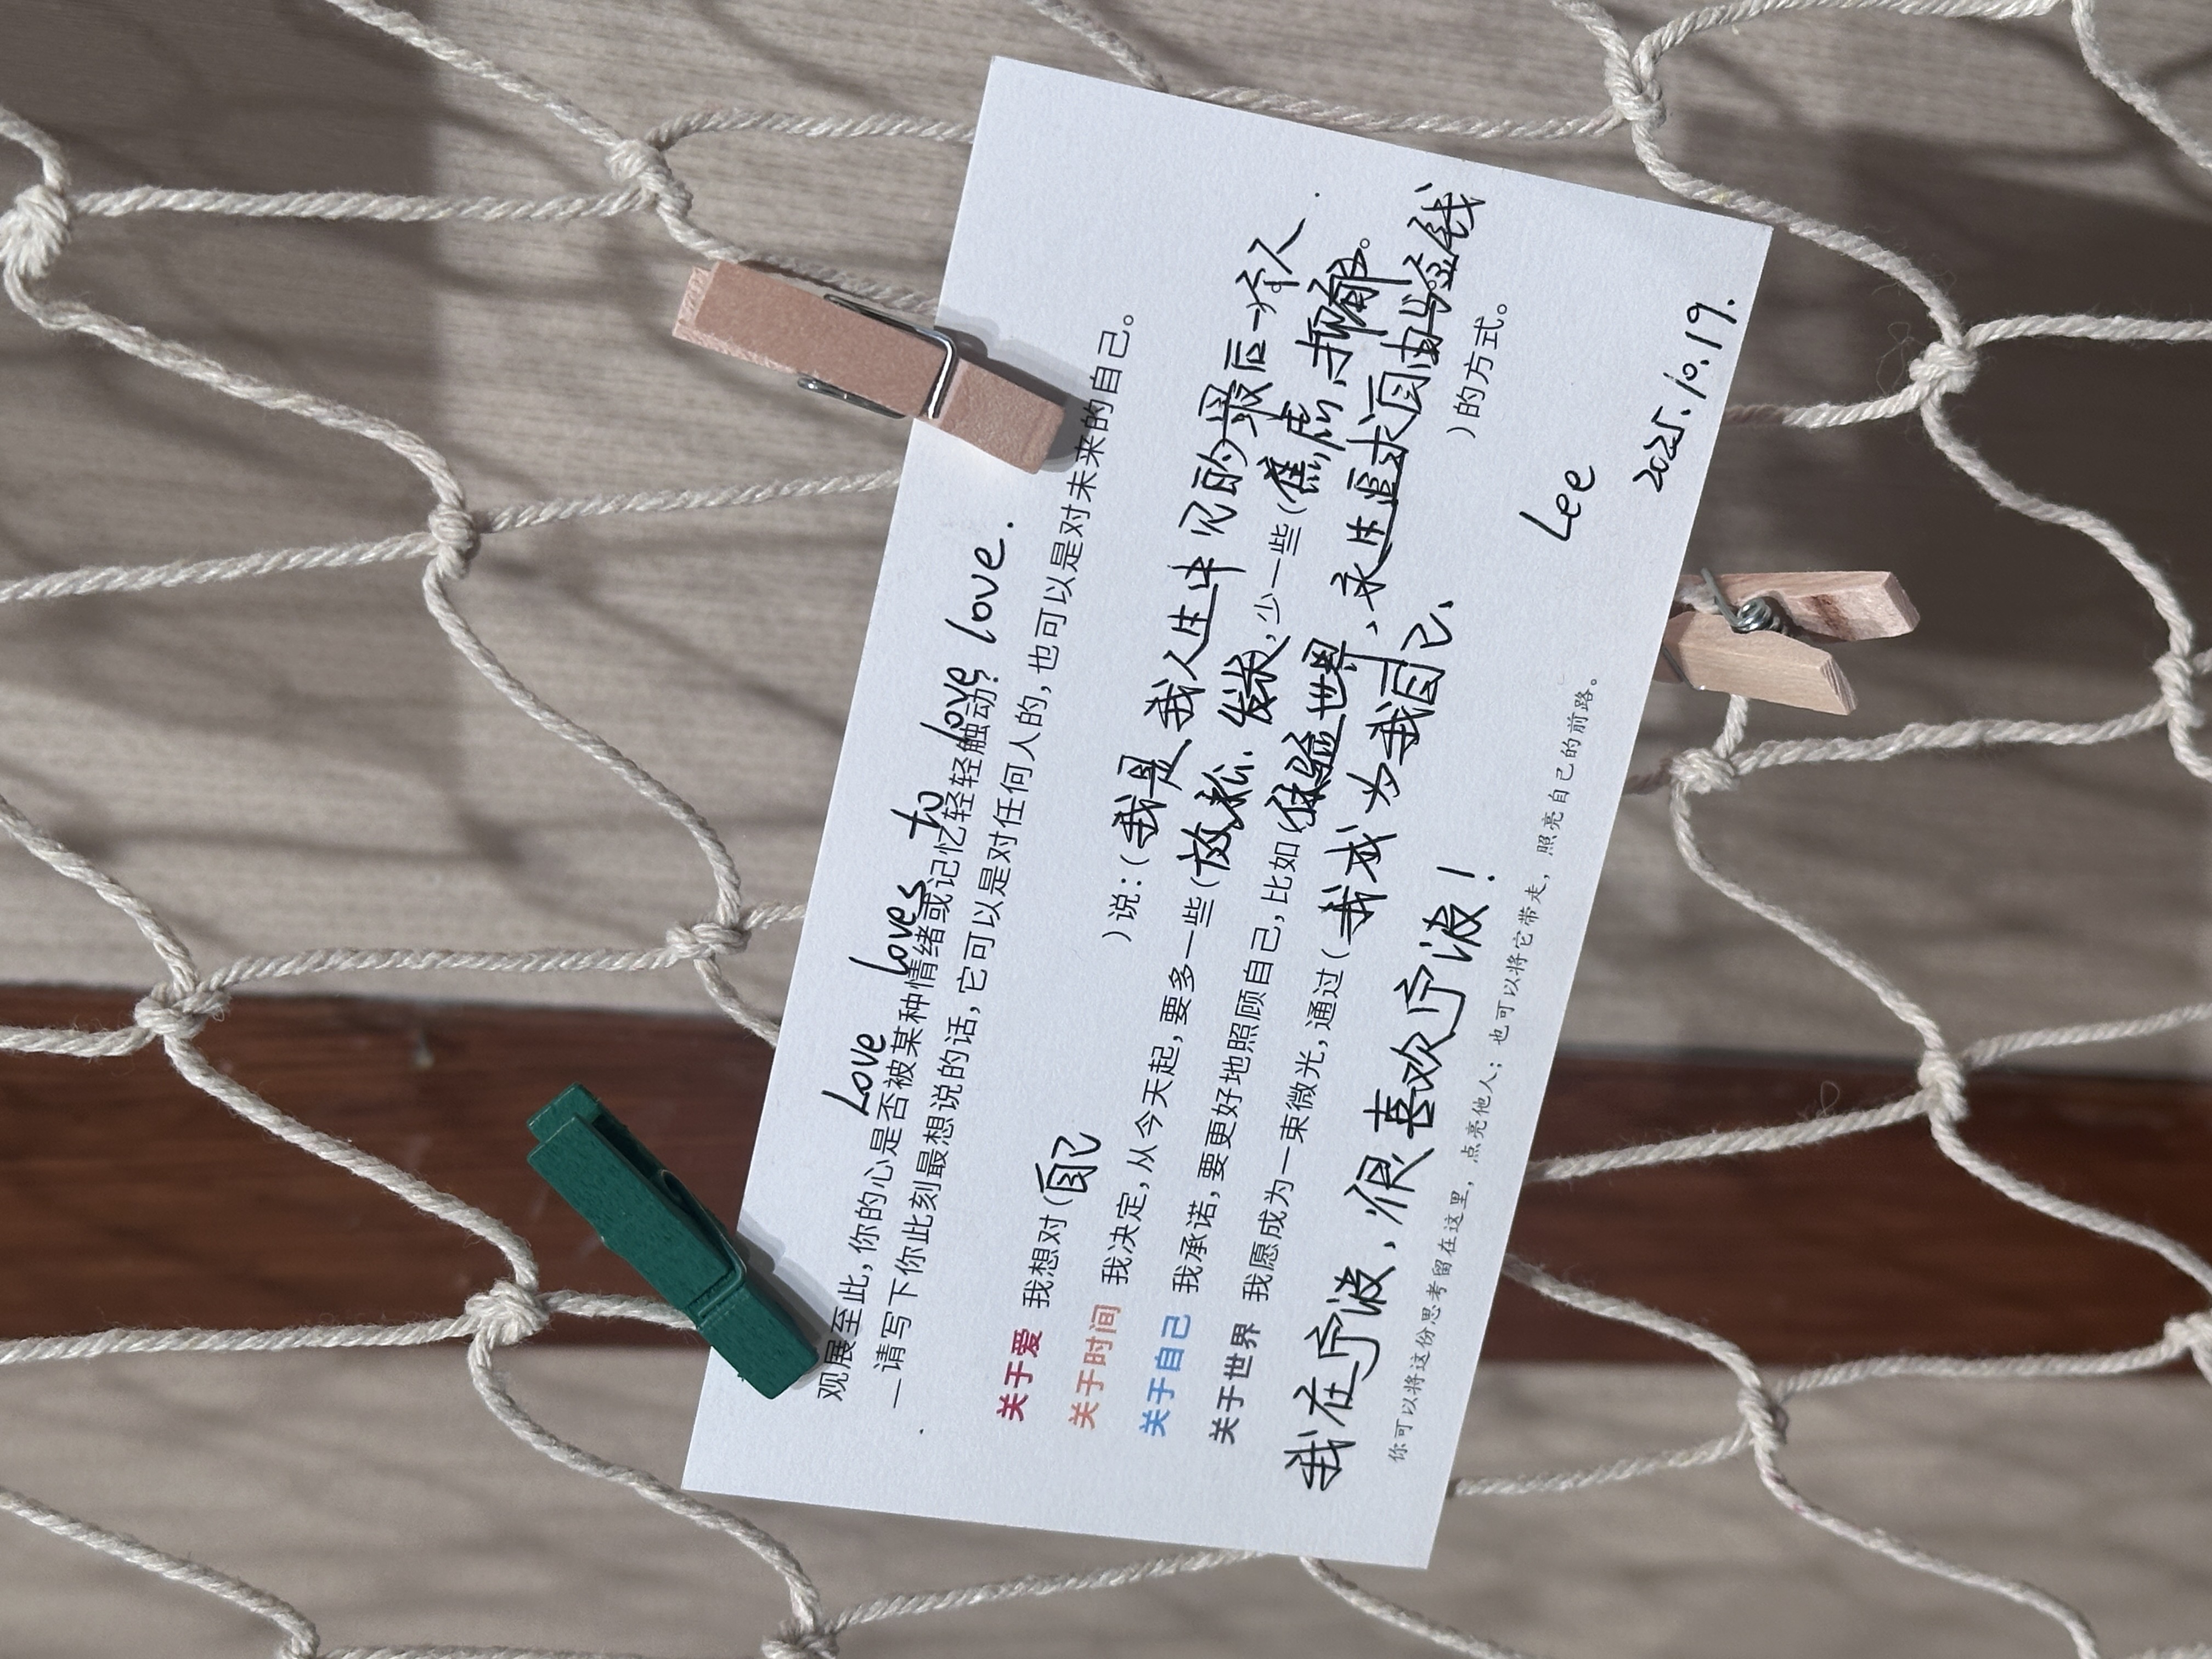 Love loves to love love.
观展至此，你的心是否被某种情绪或记忆轻轻触动？
—请写下你此刻最想说的话，它可以是对任何人的，也可以是对未来的自己。
关于爱 我想对（自己 ）说：（我是、我人生中见的最后一个人.
关于时间 我决定，从今天起，要多一些（放松、发呆），少一些（焦虑、抑郁。
关于自己 我承诺，要更好地照顾自己，比如（体验世界、永生追求自由与金钱
关于世界 我愿成为一束微光，通过（我成为我自己、 ）的方式。
我在宁波、很喜欢宁波！
Lee
2025.10.19.
你可以将这份思考留在这里，点亮他人；也可以将它带走，照亮自己的前路。